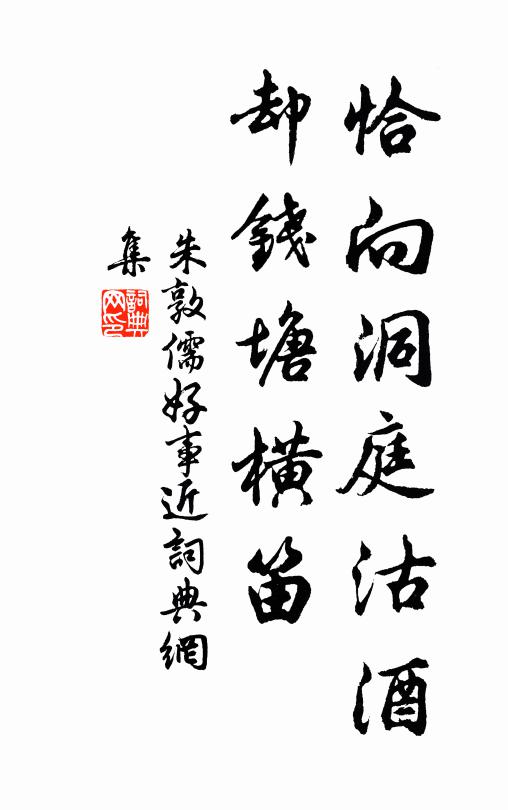 恰向洞庭沽酒
却錢塘橫笛
朱敦儒好事近詞典網
集
詞典
网印